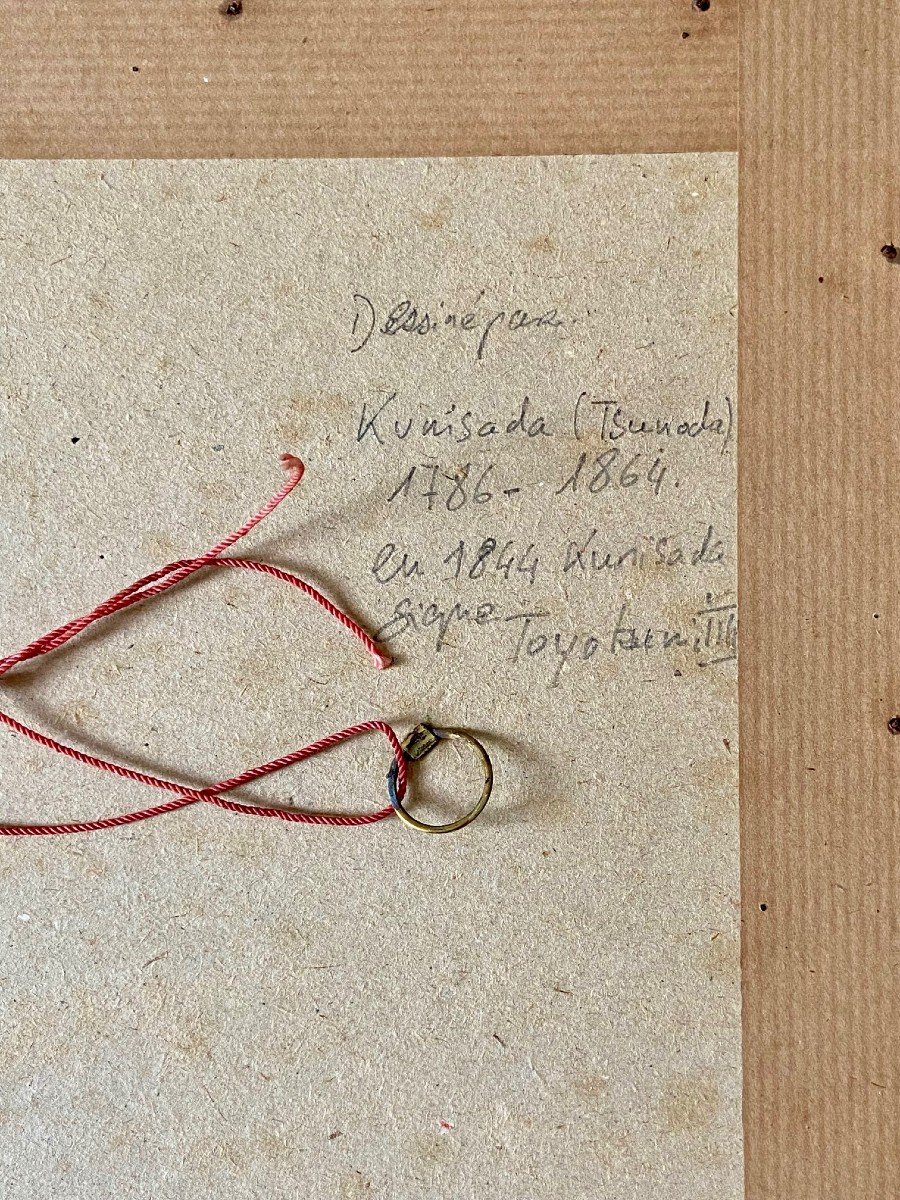 Dessiné par
Kunisada (Tsunoda)
1786- 1864.
en 1844 Kunisada
signe Toyokuni III